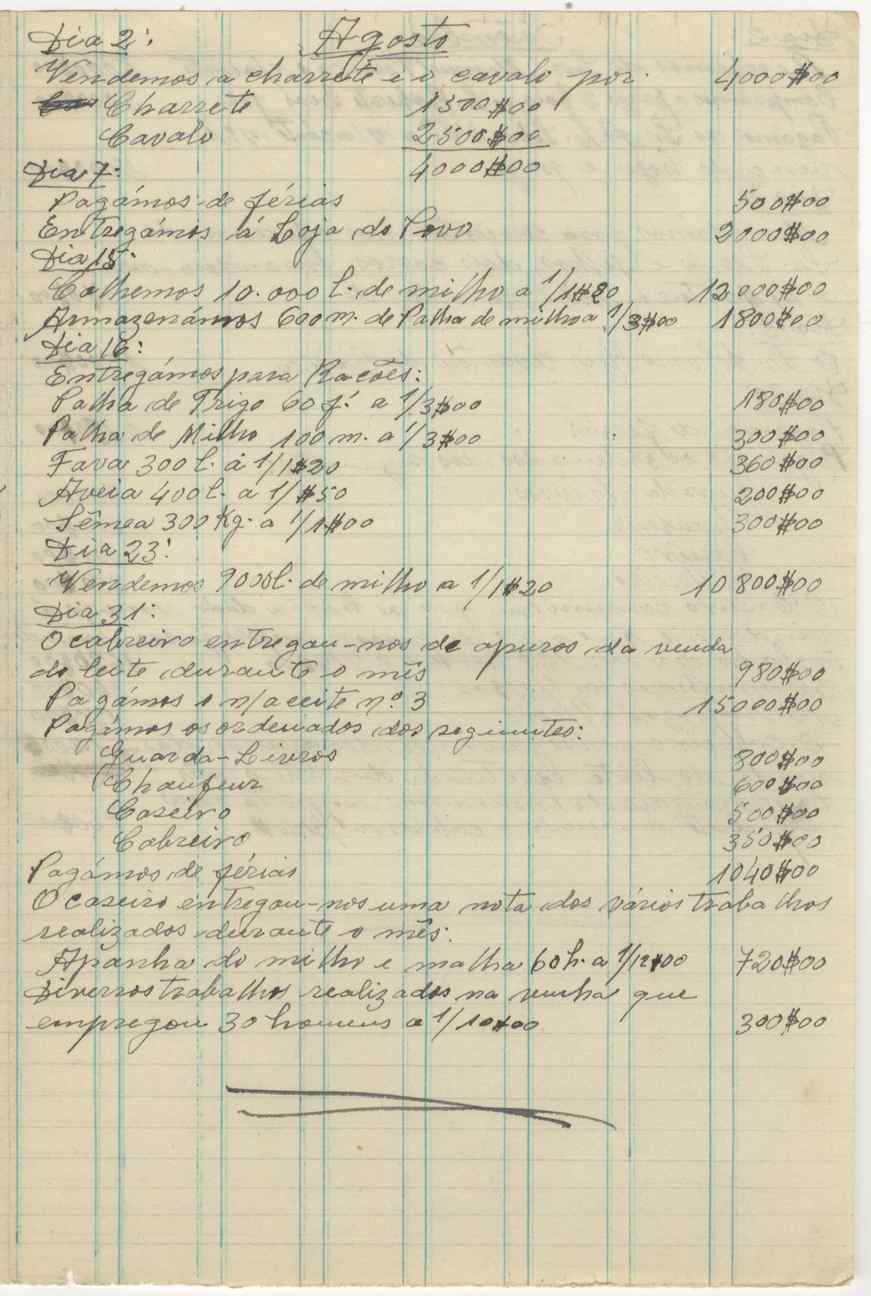 Dia 2:
Agosto
Vendemos a charrete e o cavalo por. 4000$00
Charrete 1500$00
Cavalo 2500$00
4000$00
Dia 7:
Pagámos de férias 500$00
Entregámos á Loja do Povo 2000$00
Dia 15:
Colhemos 10.000 l. de milho a 1/1$20 12000$00
Armazenámos 600 m. de Palha de milho a 1/3$00 1800$00
Dia 16:
Entregámos para Racões:
Palha de Trigo 60 f. a 1/3$00 180$00
Palha de Milho 100 m. a 1/3$00 300$00
Fava 300 l. a 1/1$20 360$00
Aveia 400 l. a 1/$50 200$00
Sêmea 300 Kg. a 1/1$00 300$00
Dia 23:
Vendemos 9000 l. de milho a 1/1$20 10800$00
Dia 31:
O cabreiro entregou-nos de apuros da venda
do leite durante o mês 980$00
Pagámos o n/aceite nº 3 15000$00
Pagámos os ordenados dos seguintes:
Guarda-Livros 800$00
Chaufeur 600$00
Caseiro 500$00
Cabreiro 350$00
Pagámos de férias 1040$00
O caseiro entregou-nos uma nota dos vários trabalhos
realizados durante o mês:
Apanha do milho e malha 60 h. a 1/12$00 720$00
Diversos trabalhos realizados na vinha que
empregou 30 homens a 1/10$00 300$00